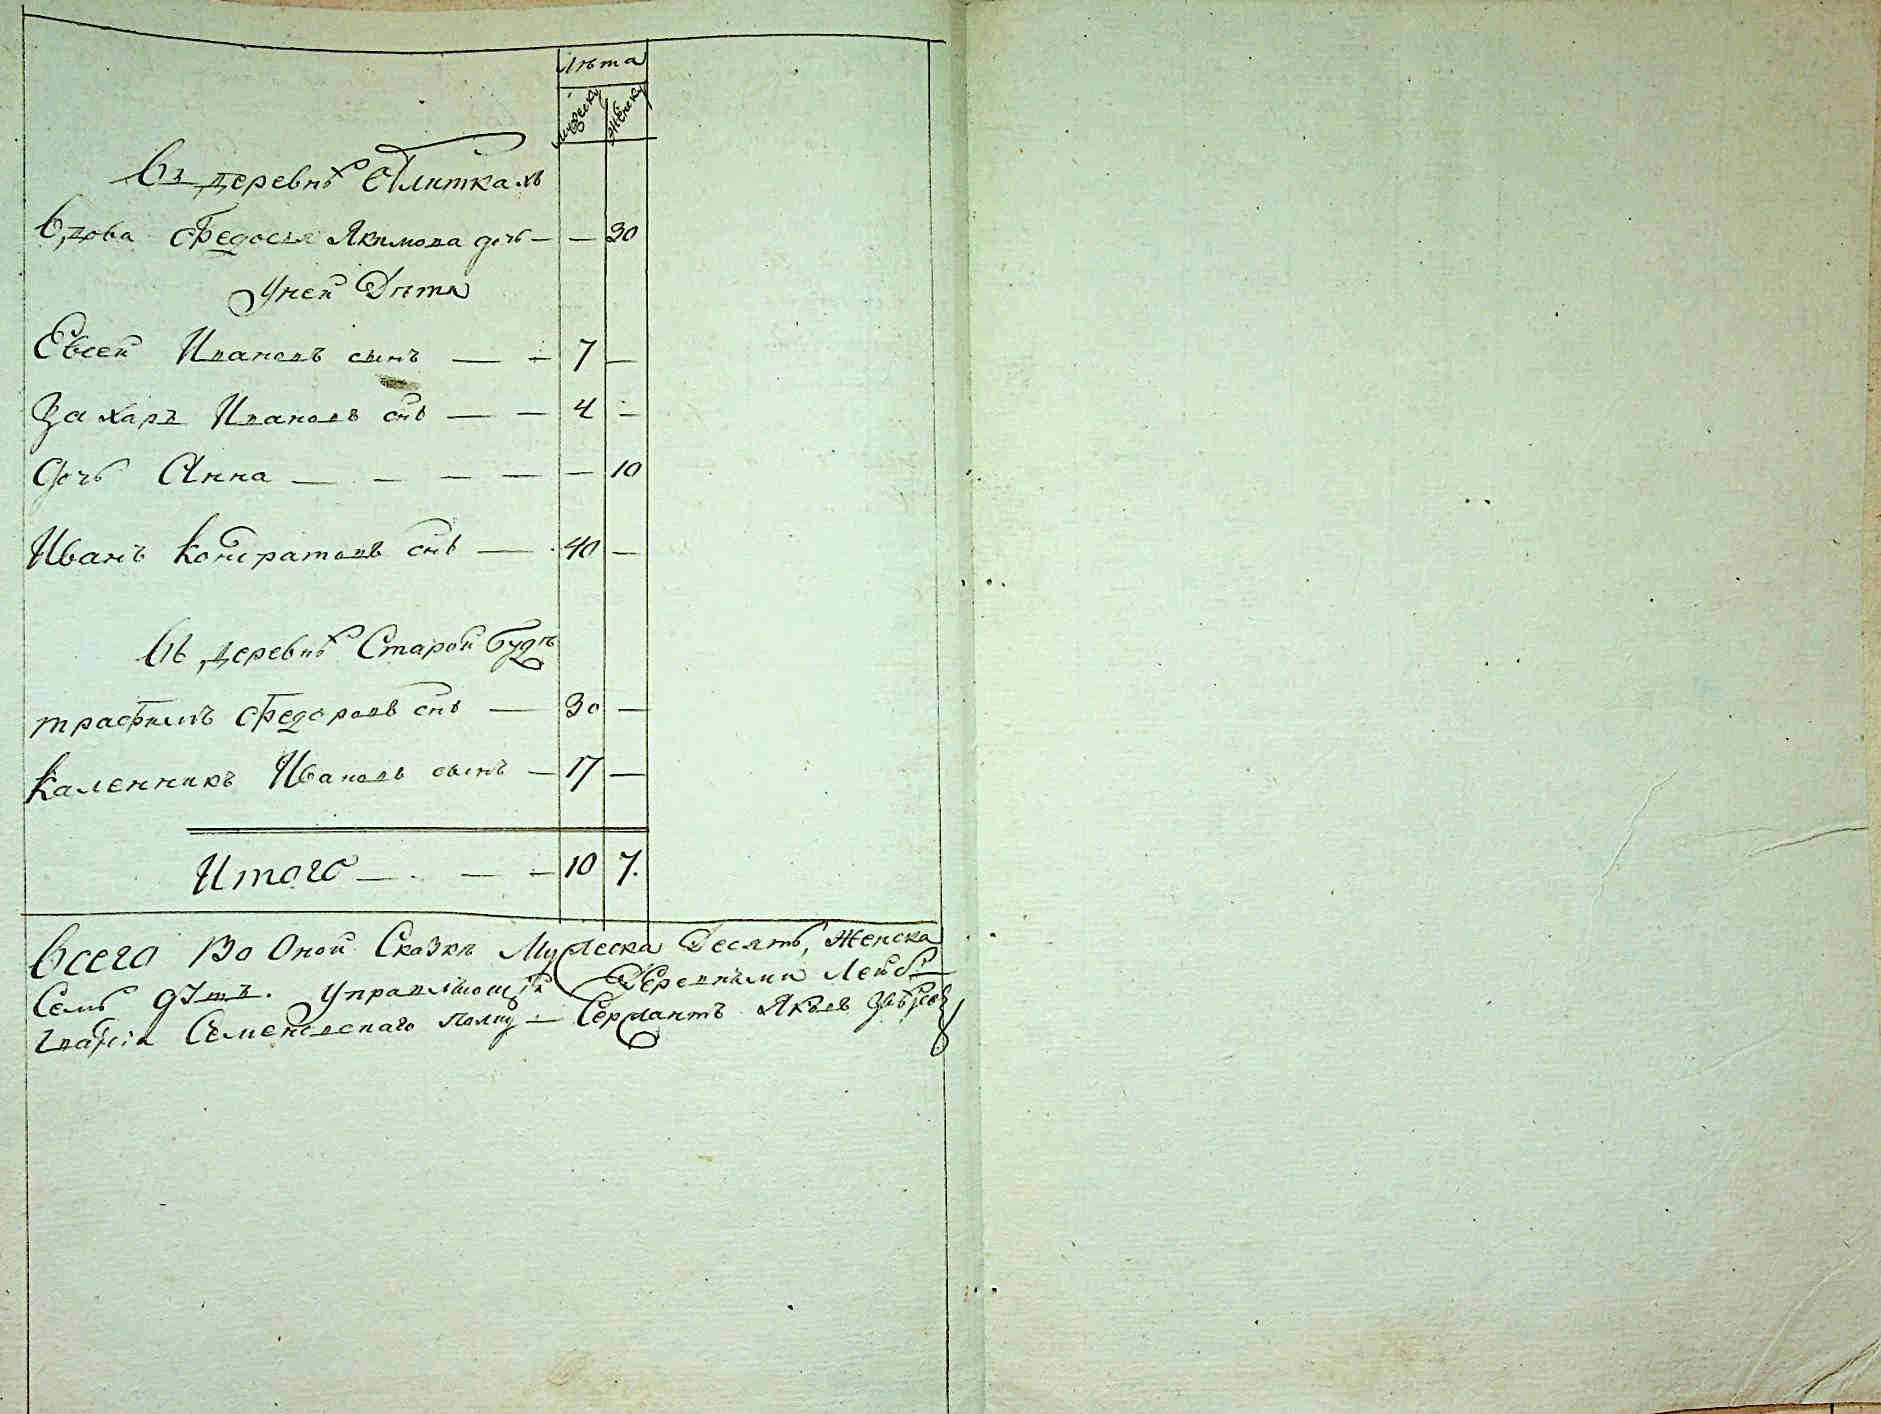 Лѣта
Мужеску Женску
Въ деревнѣ Плиткахъ
Вдова Федосья Якимова дочь — — 30
У ней Дѣти
Евсей Ивановъ сынъ — — 7 —
Захаръ Ивановъ снъ — — 4 —
Дочь Анна — — — — — 10
Иванъ Кондратовъ снъ — 40 —
Въ деревнѣ Старой Будѣ
Трафимъ Федоровъ снъ — 30 —
Каленникъ Ивановъ сынъ — 17 —
Итого — — — 10 7.
Всего Во Оной Сказкѣ Мужеска Десять, Женска
Семь душъ. Управляющій Деревнями Лейбъ
гвардіи Семеновскаго полку — Сержантъ Яковъ